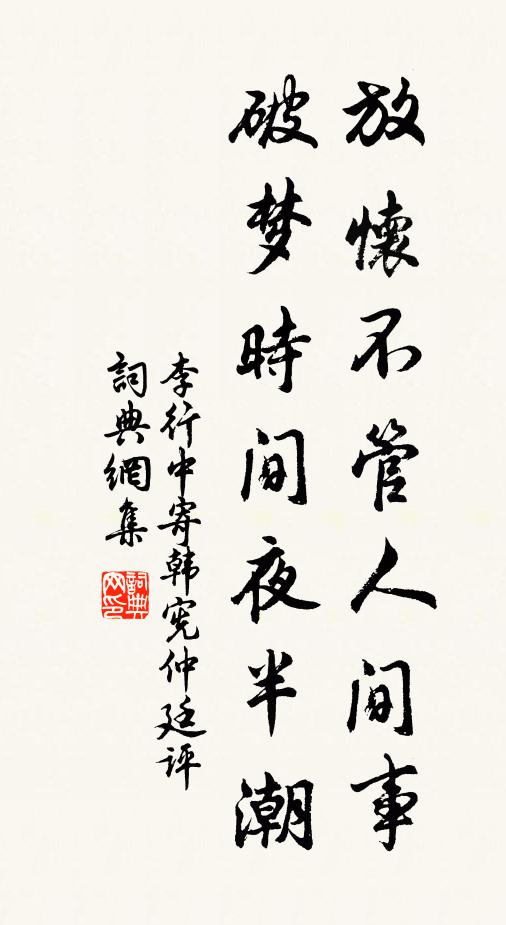 放懷不管人間事
破梦時間夜半潮
李行中寄韩宪仲廷评
詞典網集
詞典网印